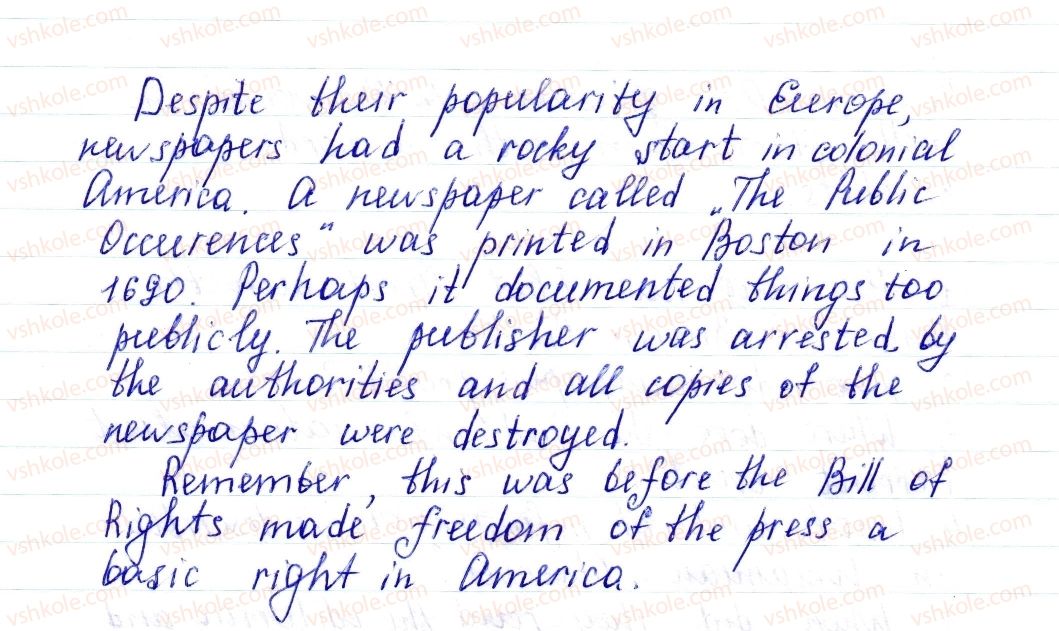 Despite their popularity in Europe,
newspapers had a rocky start in colonial
America. A newspaper called „The Public
Occurences“ was printed in Boston in
1690. Perhaps it documented things too
publicly. The publisher was arrested by
the authorities and all copies of the
newspaper were destroyed.
Remember, this was before the Bill of
Rights made freedom of the press a
basic right in America.